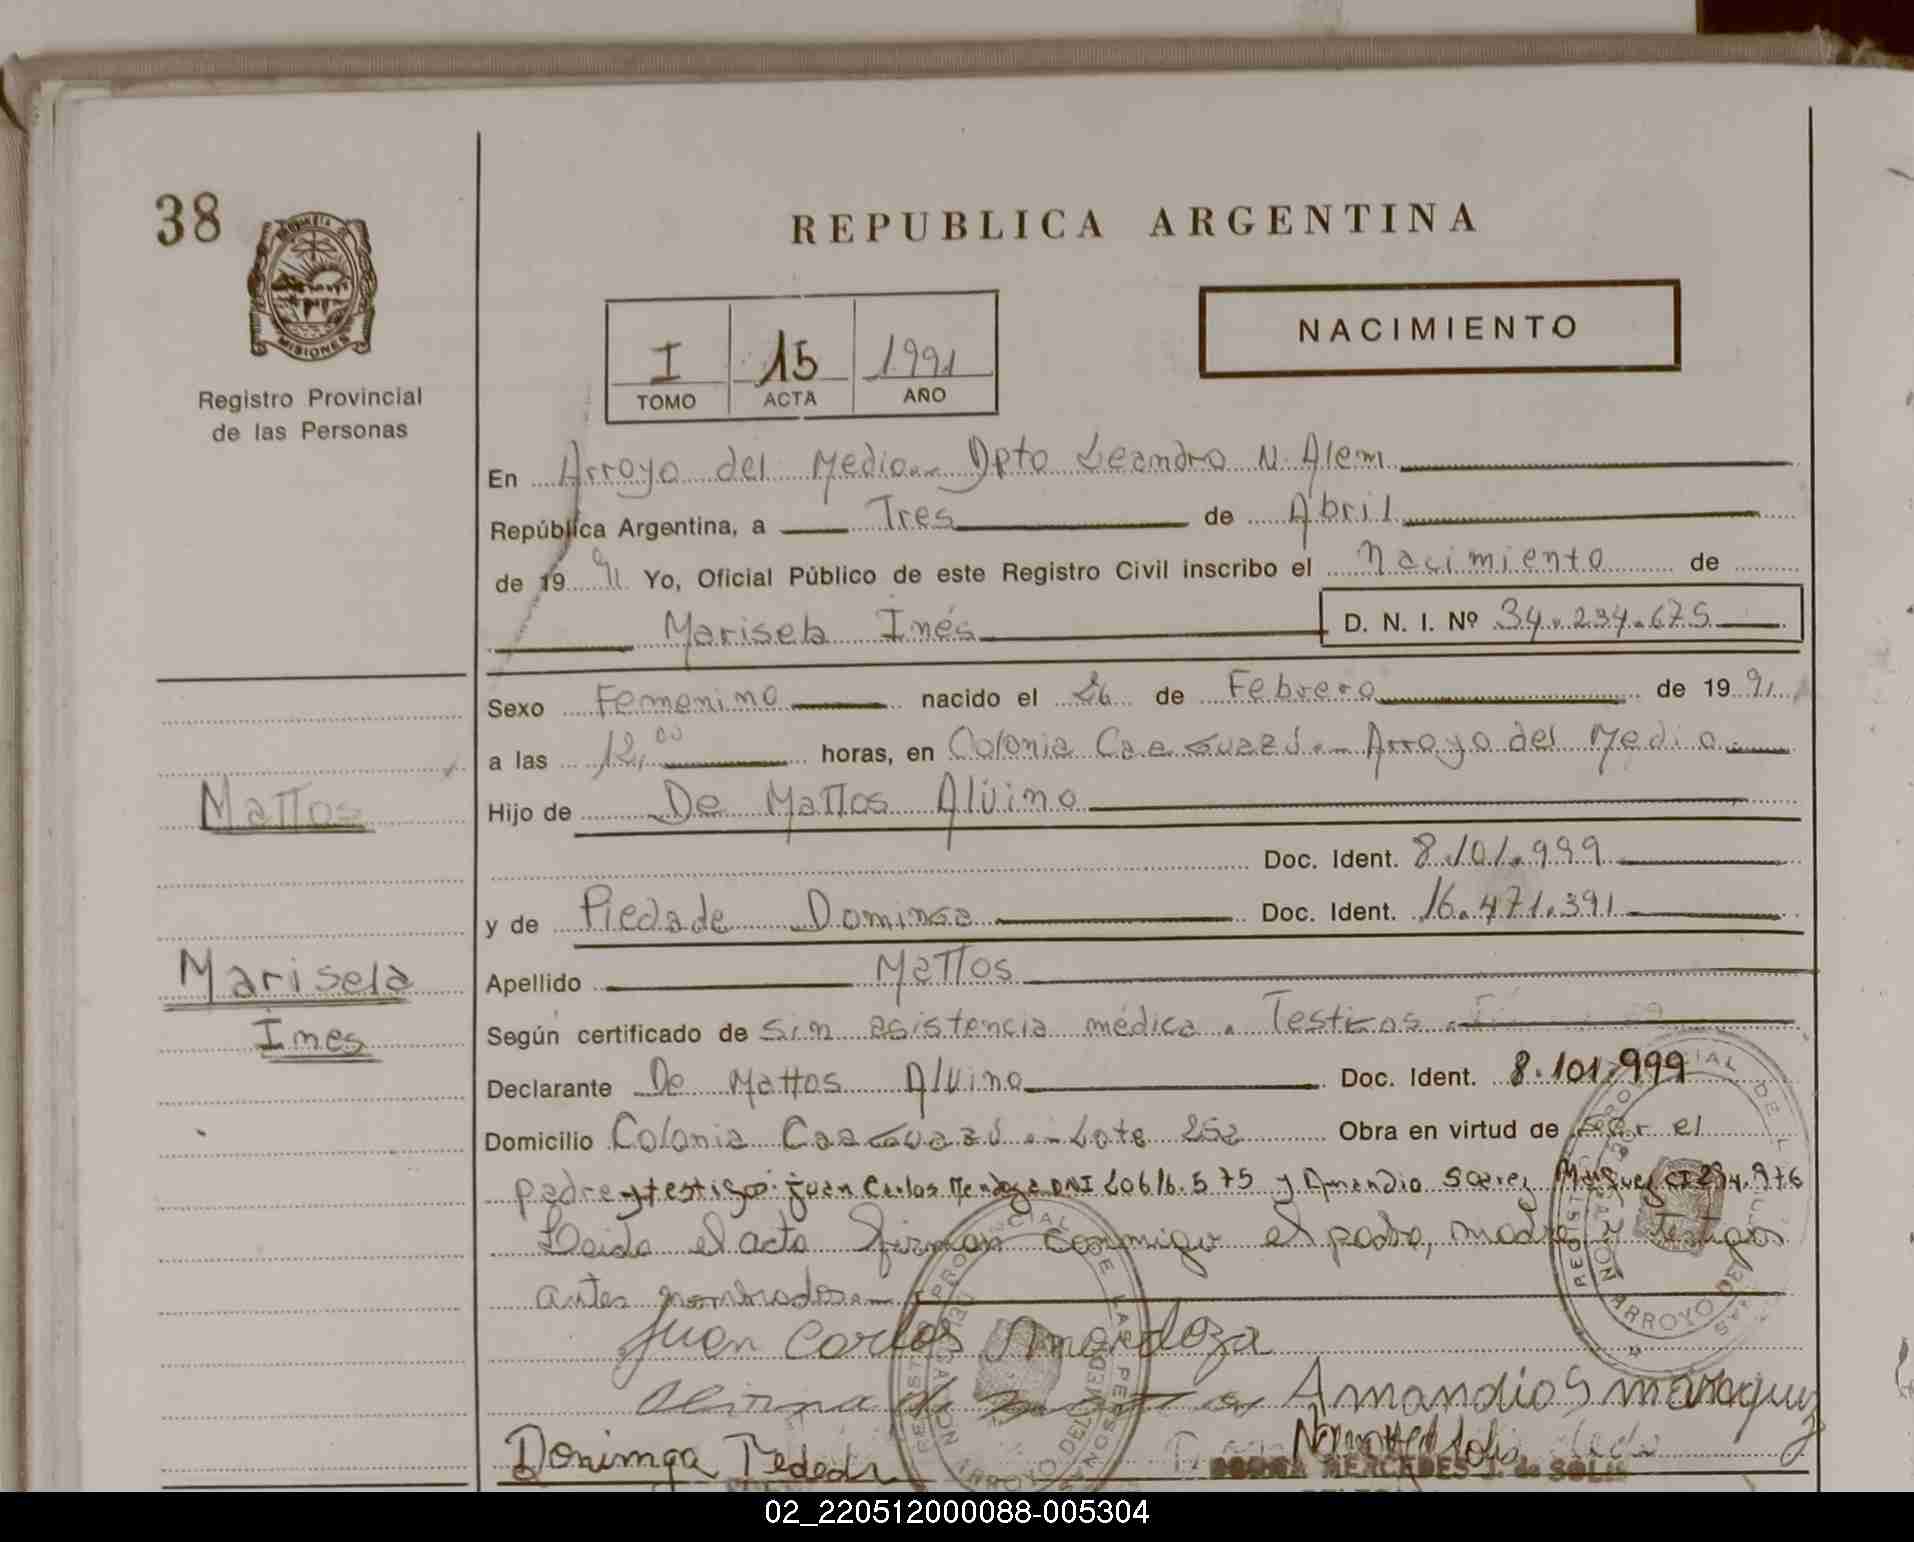 38
MISIONES
Registro Provincial
de las Personas
REPUBLICA ARGENTINA
I 15 1991
TOMO ACTA AÑO
NACIMIENTO
En Arroyo del Medio Dpto Leandro N. Alem
República Argentina, a Tres de Abril
de 19 91 Yo, Oficial Público de este Registro Civil inscribo el Nacimiento de
Marisela Inés D. N. I. Nº 34.234.675
Sexo Femenino nacido el 26 de Febrero de 19 91
a las 12,00 horas, en Colonia Caa Guazú - Arroyo del Medio
Mattos
Hijo de De Mattos Alvino
Doc. Ident. 8.101.999
y de Piedade Dominga Doc. Ident. 16.471.391
Marisela
Apellido Mattos
Ines
Según certificado de sin asistencia médica. Testigos
Declarante De Mattos Alvino Doc. Ident. 8.101.999
Domicilio Colonia Caa Guazú - Lote 252 Obra en virtud de ser el
padre y testigos Juan Carlos Mendoza DNI 20616.575 y Amandio Suarez CI 294.976
Leida el acta firman conmigo el padre, madre y testigos
antes nombrados
Juan Carlos Mendoza
Amandio S marquez
Dominga
MERCEDES J. de SOLIS
02_220512000088-005304